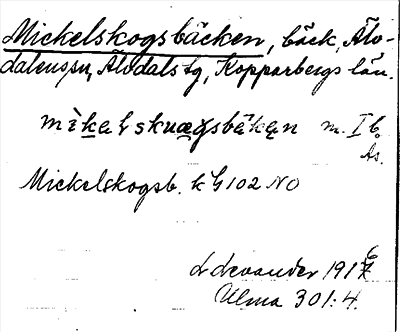 Mickelskogsbäcken, bäck, Älv-
dalens sn, Älvdals tg, Kopparbergs län.
m. I b.
As.
Mickelskogsb. k G 102 NO
L Levander 1916
Ulma 301:4.